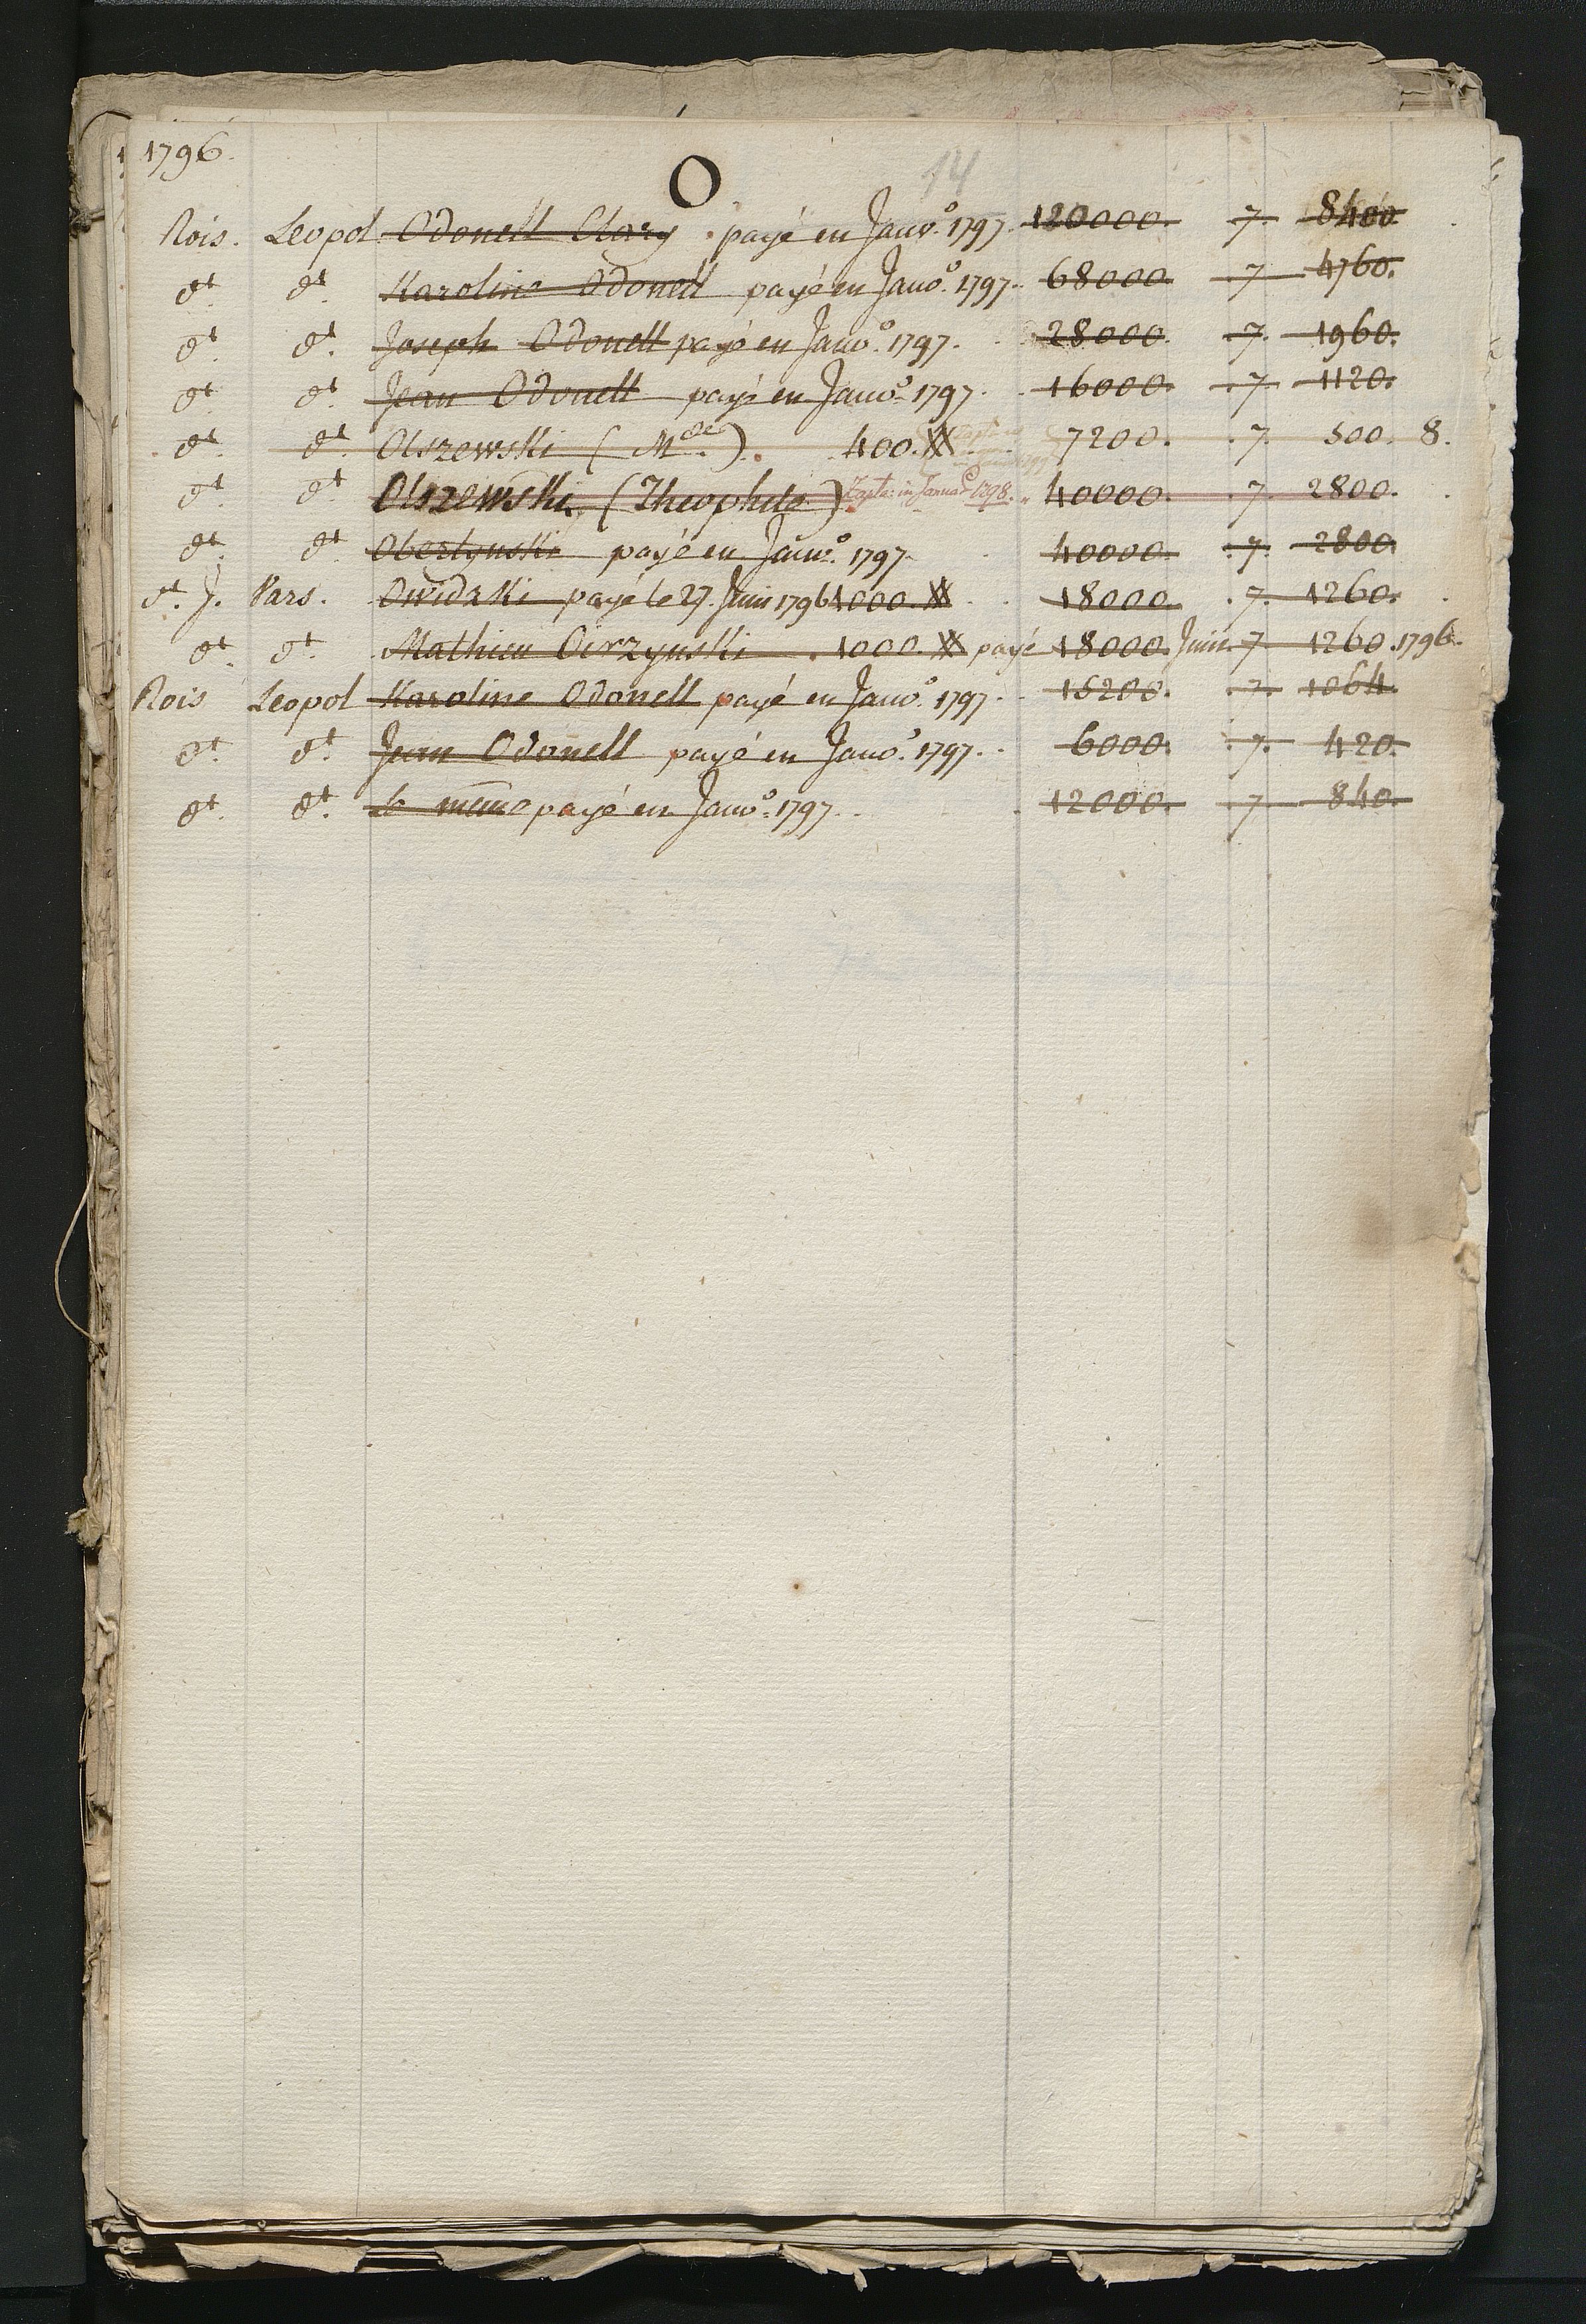 1796.
O 14
Rois. Leopol Odonell Clary payé en Janv.º 1797. 120000. 7. 8400
dt. dt. Karoline Odonell payé en Janv.º 1797. 68000 7 4760.
dt. dt. Joseph Odonell payé en Janv.º 1797. 28000 7. 1960.
dt. dt. Jean Odonell payé en Janv.º 1797. 16000. 7. 1120.
dt. dt. Olszewski (Mde.). 400. 7200. 7. 500. 8.
dt. dt. Olszewski (Theophile) Zapła: in Januar 1798. 40000. 7. 2800.
dt. dt. Obertynski payé en Janv.º 1797. 40000. 7. 2800.
dt. J. Vars. payé le 27. Juin 1796 1000. 18000. 7. 1260.
dt. dt. Mathieu 1000. payé 18000. Juin. 7. 1260. 1796.
Rois Leopol Karoline Odonell payé en Janv.º 1797. 15200. 7. 1064.
dt. dt. Jean Odonell payé en Janv.º 1797. 6000. 7. 420.
dt. dt. le même payé en Janv.º 1797. 12000. 7. 840.